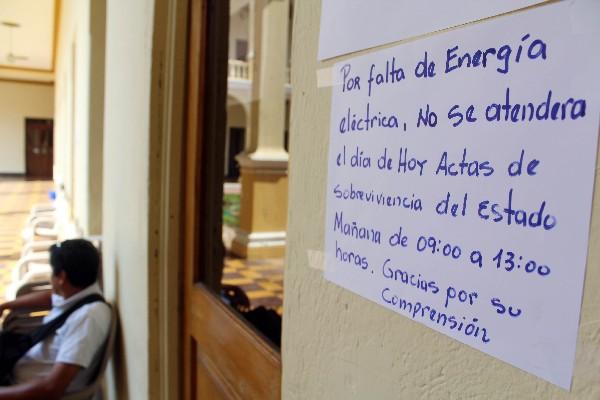 Por falta de Energía
eléctrica, No se atendera
el día de Hoy Actas de
sobreviviencia del Estado
Mañana de 09:00 a 13:00
horas. Gracias por su
Comprensión